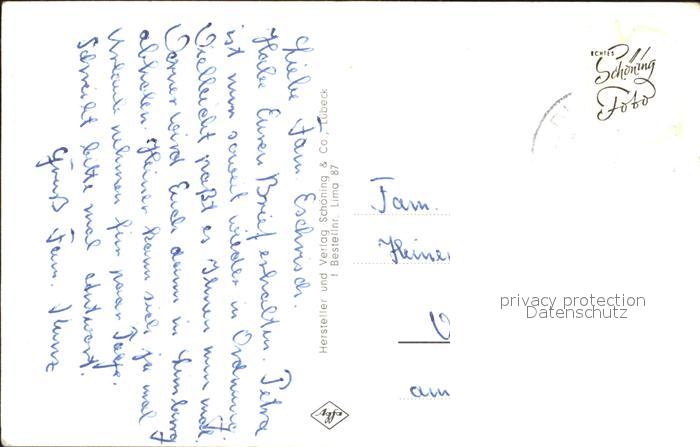 Liebe Fam. Eschrich.
Habe Euren Brief erhalten. Petra
ist nun soweit wieder in Ordnung.
Vielleicht paßt es Ihnen nun mal.
Werner wird Euch dann in Limburg
abholen. Heiner kann sich ja mal
Urlaub nehmen für paar Tage.
Schreibt bitte mal Antwort.
Gruß Fam. Kunz
Hersteller und Verlag Schöning & Co., Lübeck
1 Bestellnr. Lima 87
ECHTES
Schöning
Foto
Fam.
Heine
am
privacy protection
Datenschutz
Agfa